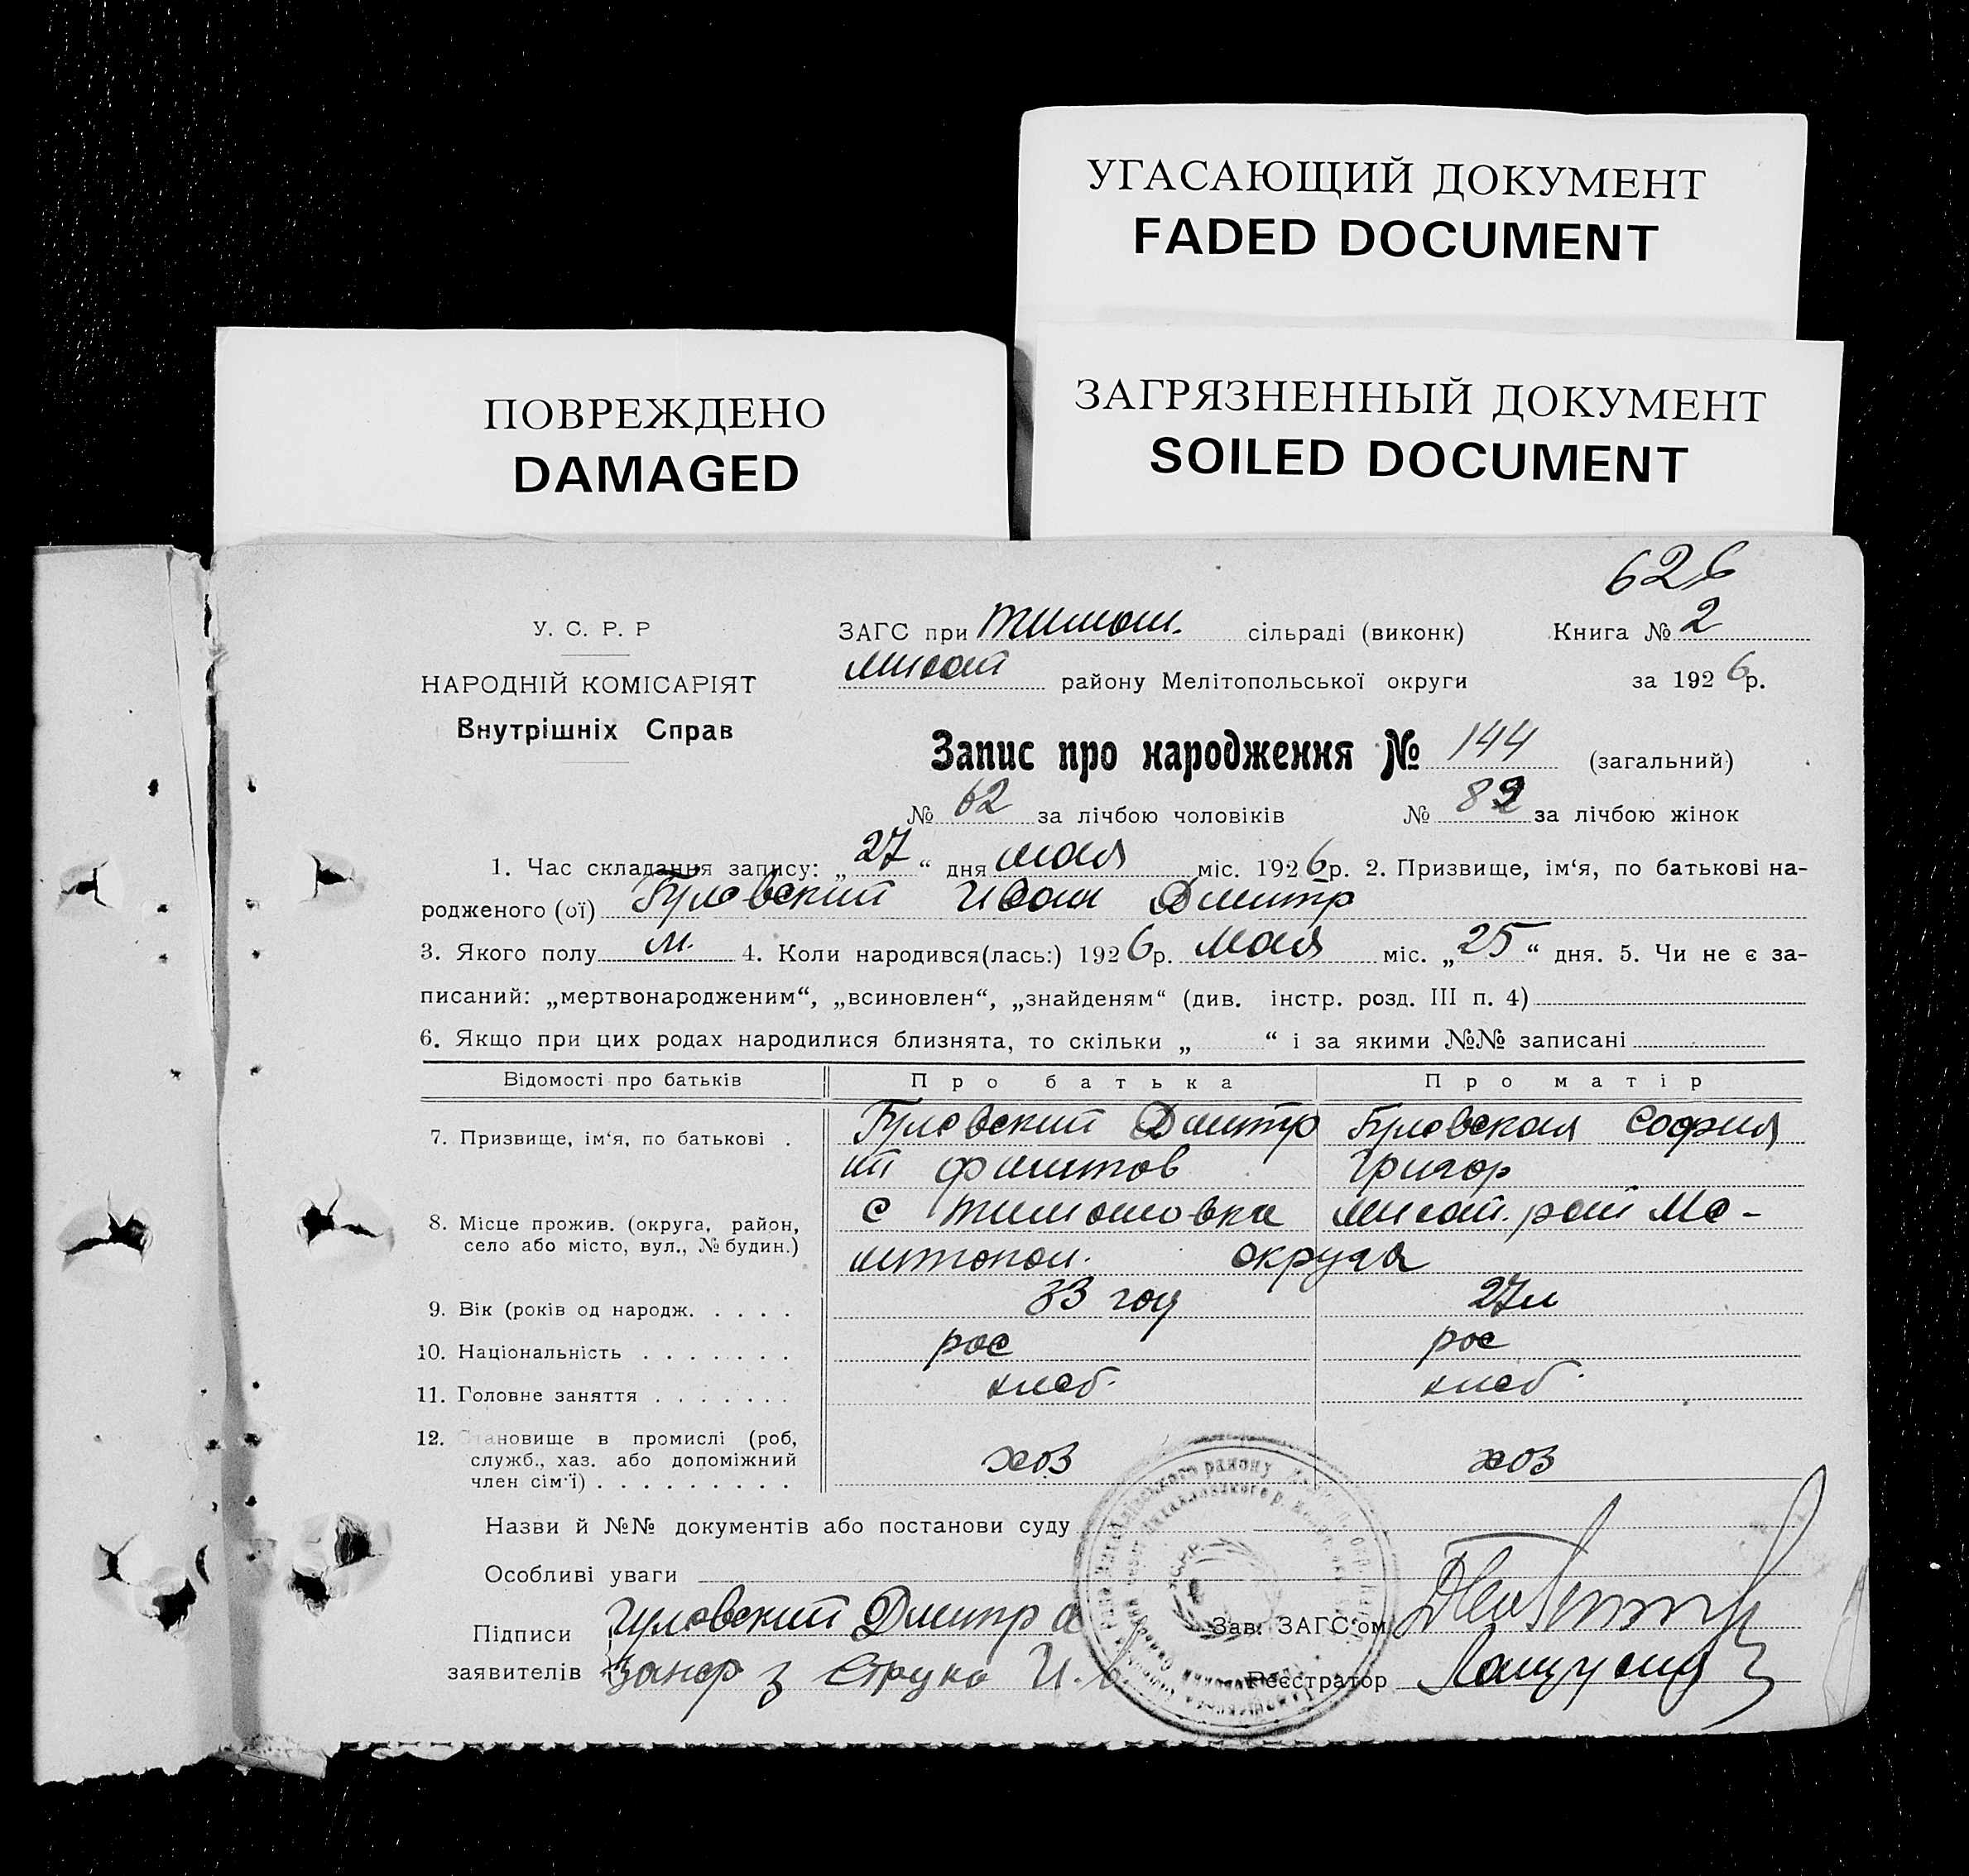 УГАСАЮЩИЙ ДОКУМЕНТ
FADED DOCUMENT
ПОВРЕЖДЕНО
DAMAGED
ЗАГРЯЗНЕННЫЙ ДОКУМЕНТ
SOILED DOCUMENT
626
У. С. Р. Р
НАРОДНІЙ КОМІСАРІЯТ
Внутрішніх Справ
ЗАГС при Тимош. сільраді (виконк) Книга № 2
Мисай району Мелітопольської округи за 1926 р.
Запис про народження № 144 (загальний)
№ 62 за лічбою чоловіків № 82 за лічбою жінок
1. Час складання запису: „27“ дня мая міс. 1926 р. 2. Призвище, ім‘я, по батькові на-
родженого (ої) Иван Дмитр
3. Якого полу м. 4. Коли народився(лась:) 1926 р. мая міс. „25“ дня. 5. Чи не є за-
писаний: „мертвонародженим“, „всиновлен“, „знайденям“ (див. інстр. розд. III п. 4)
6. Якщо при цих родах народилися близнята, то скільки „ “ і за якими №№ записані
Відомості про батьків Про батька Про матір
7. Призвище, ім‘я, по батькові . Дмитр София
ий Григор
8. Місце прожив. (округа, район, село або місто, вул., № будин.) с Тимошовка рай Ме-
литопол. округа
9. Вік (років од народж. . . . . 33 год 27 л
10. Національність . . . . . . . рос рос
11. Головне заняття . . . . . . . хлеб. хлеб.
12. Становище в промислі (роб, служб., хаз. або допоміжний член сім‘ї) . . . . . . . . . хоз хоз
Назви й №№ документів або постанови суду
Особливі уваги
Підписи Дмитр Зав. ЗАГС‘ом
заявителів Реєстратор